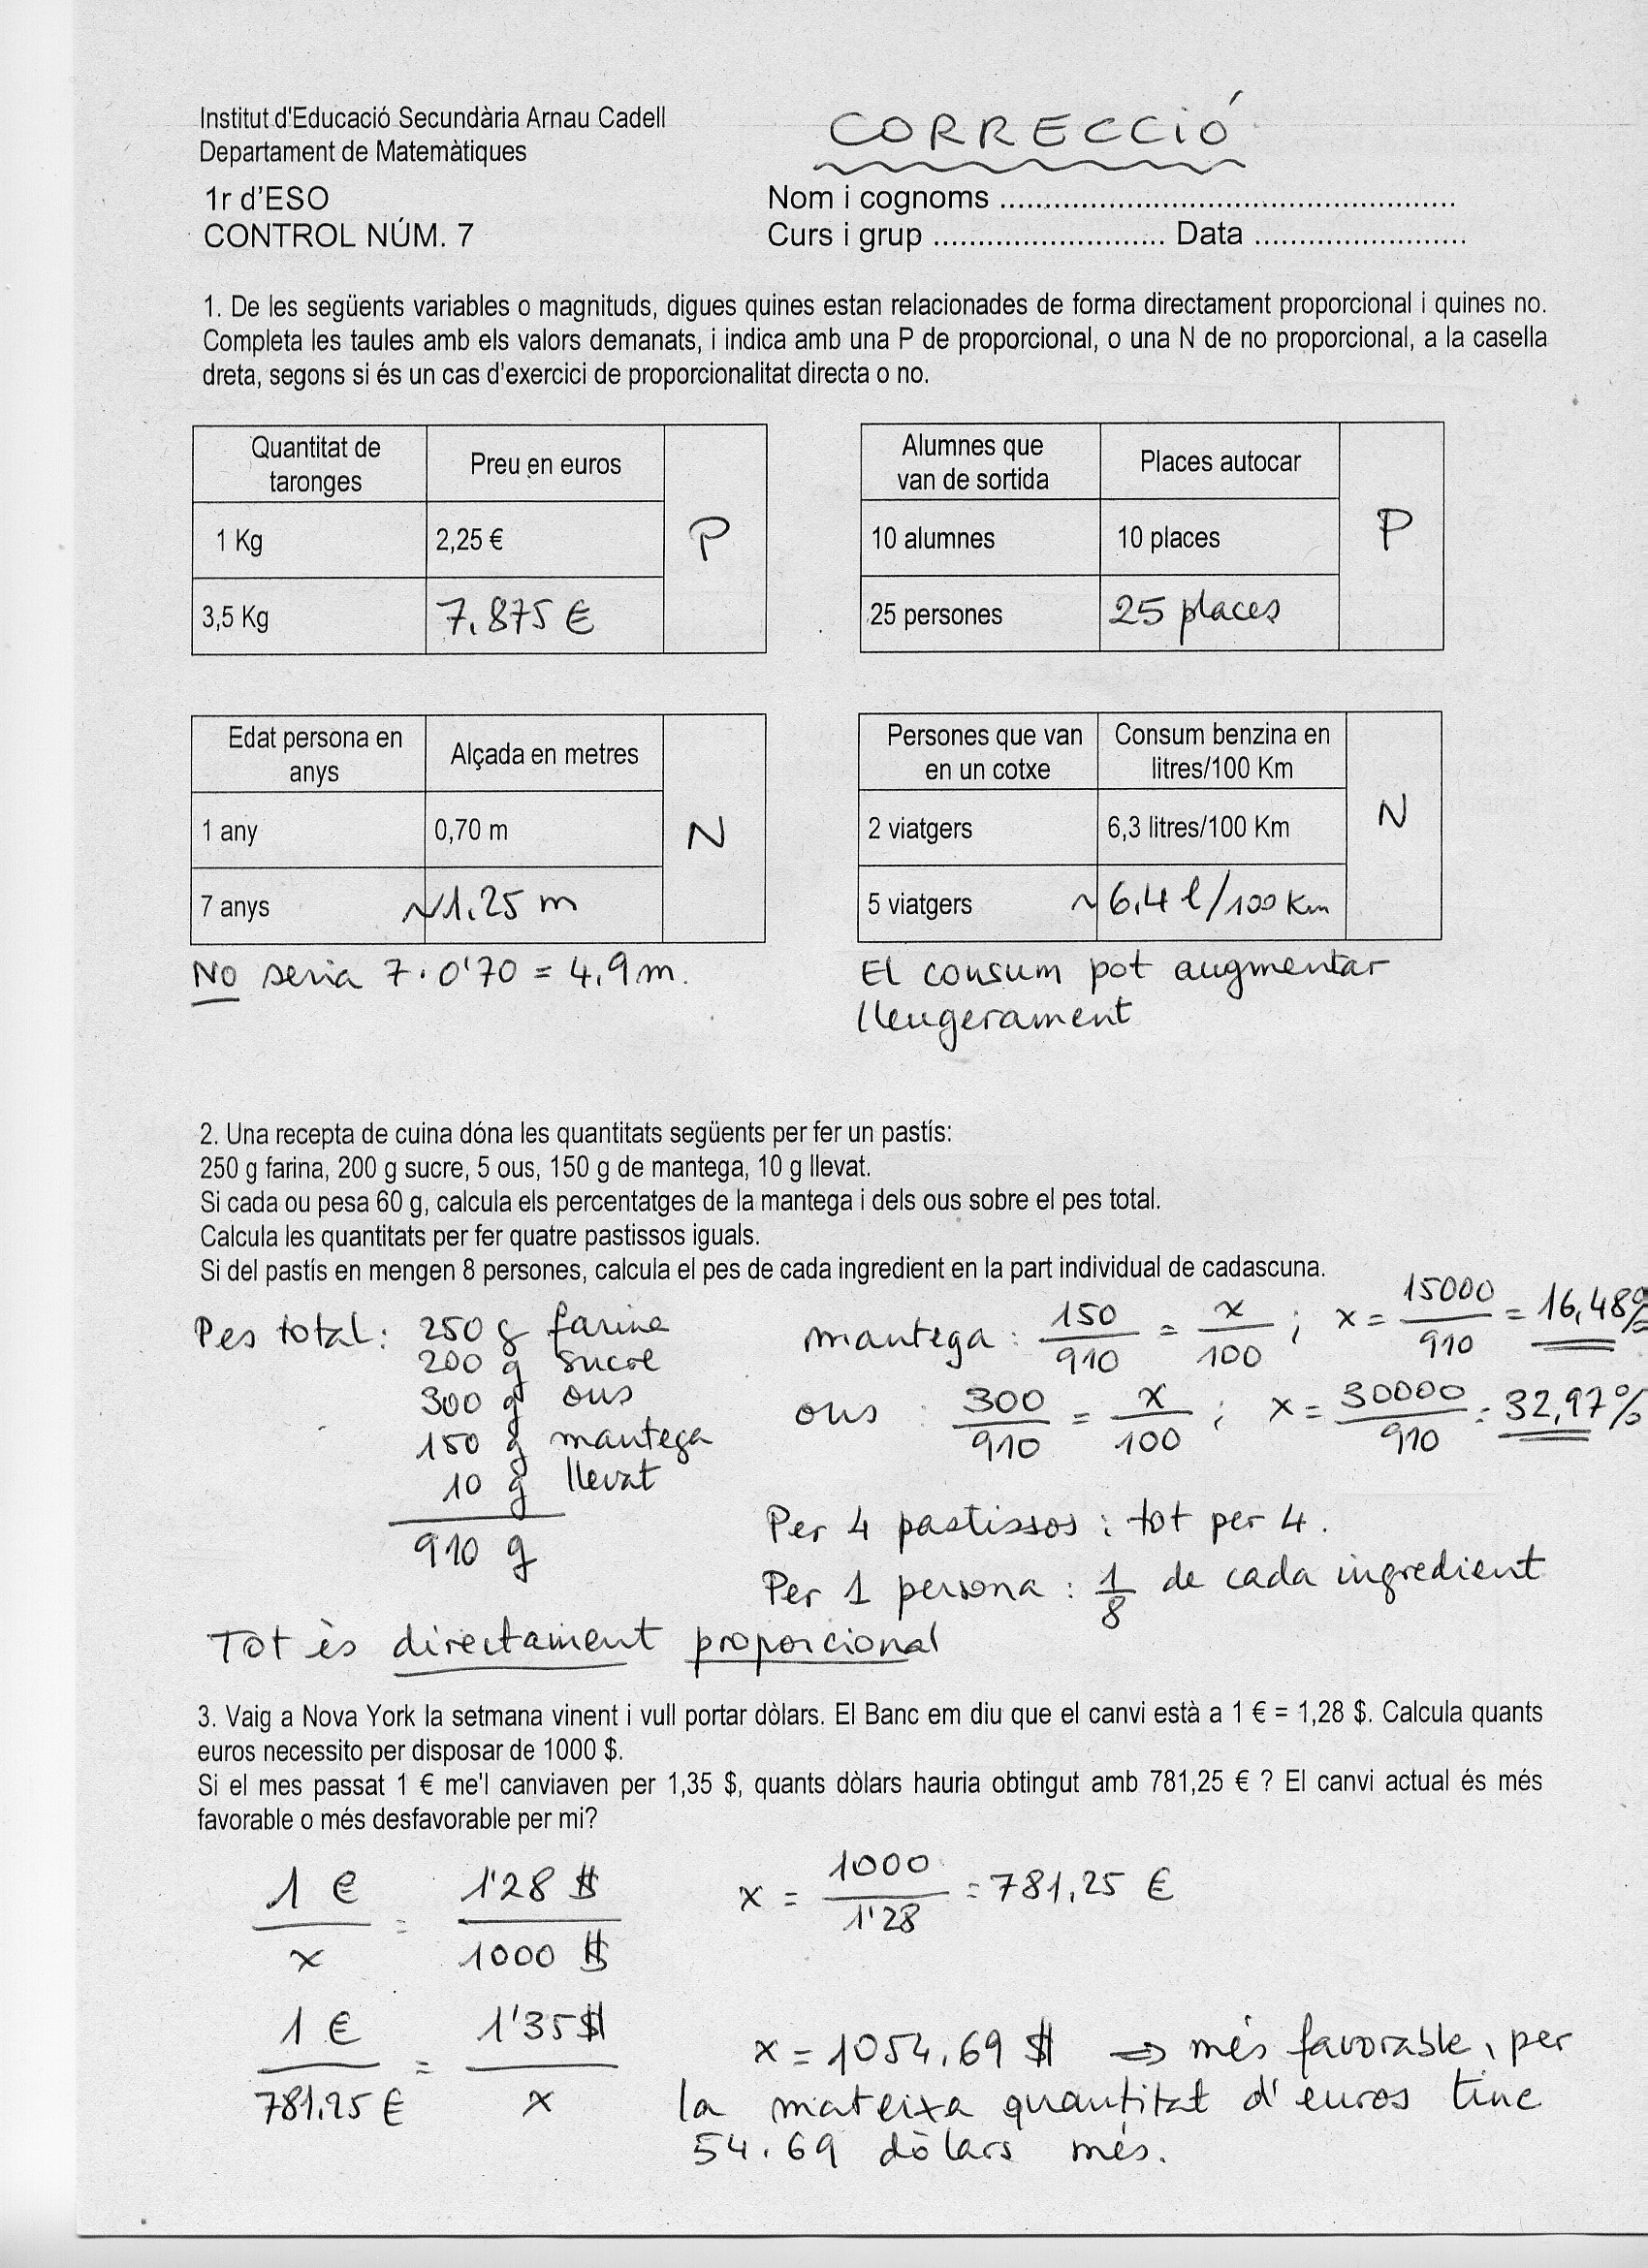 Institut d'Educació Secundària Arnau Cadell
Departament de Matemàtiques
CORRECCIÓ
1r d'ESO
CONTROL NÚM. 7
Nom i cognoms ........................................................
Curs i grup ............................ Data ..........................
1. De les següents variables o magnituds, digues quines estan relacionades de forma directament proporcional i quines no.
Completa les taules amb els valors demanats, i indica amb una P de proporcional, o una N de no proporcional, a la casella
dreta, segons si és un cas d'exercici de proporcionalitat directa o no.
Quantitat de
taronges
Preu en euros
1 Kg
2,25 €
3,5 Kg
7.875 €
P
Alumnes que
van de sortida
Places autocar
10 alumnes
10 places
25 persones
25 places
P
Edat persona en
anys
Alçada en metres
1 any
0,70 m
7 anys
~1.25 m
N
No seria 7·0'70 = 4,9 m.
Persones que van
en un cotxe
Consum benzina en
litres/100 Km
2 viatgers
6,3 litres/100 Km
5 viatgers
~6,4 l/100 Km
N
El consum pot augmentar
lleugerament
2. Una recepta de cuina dóna les quantitats següents per fer un pastís:
250 g farina, 200 g sucre, 5 ous, 150 g de mantega, 10 g llevat.
Si cada ou pesa 60 g, calcula els percentatges de la mantega i dels ous sobre el pes total.
Calcula les quantitats per fer quatre pastissos iguals.
Si del pastís en mengen 8 persones, calcula el pes de cada ingredient en la part individual de cadascuna.
Pes total: 250 g farina
200 g sucre
300 g ous
150 g mantega
10 g llevat
910 g
mantega: 150/910 = x/100 ; x = 15000/910 = 16,48%
ous : 300/910 = x/100 ; x = 30000/910 = 32,97%
Per 4 pastissos : tot per 4.
Per 1 persona : 1/8 de cada ingredient
Tot ès directament proporcional
3. Vaig a Nova York la setmana vinent i vull portar dòlars. El Banc em diu que el canvi està a 1 € = 1,28 $. Calcula quants
euros necessito per disposar de 1000 $.
Si el mes passat 1 € me'l canviaven per 1,35 $, quants dòlars hauria obtingut amb 781,25 € ? El canvi actual és més
favorable o més desfavorable per mi?
1 €/x = 1'28 $/1000 $
x = 1000/1'28 = 781,25 €
1 €/781.25 € = 1'35 $/x
x = 1054.69 $ ⇒ més favorable, per
la mateixa quantitat d'euros tinc
54.69 dòlars més.